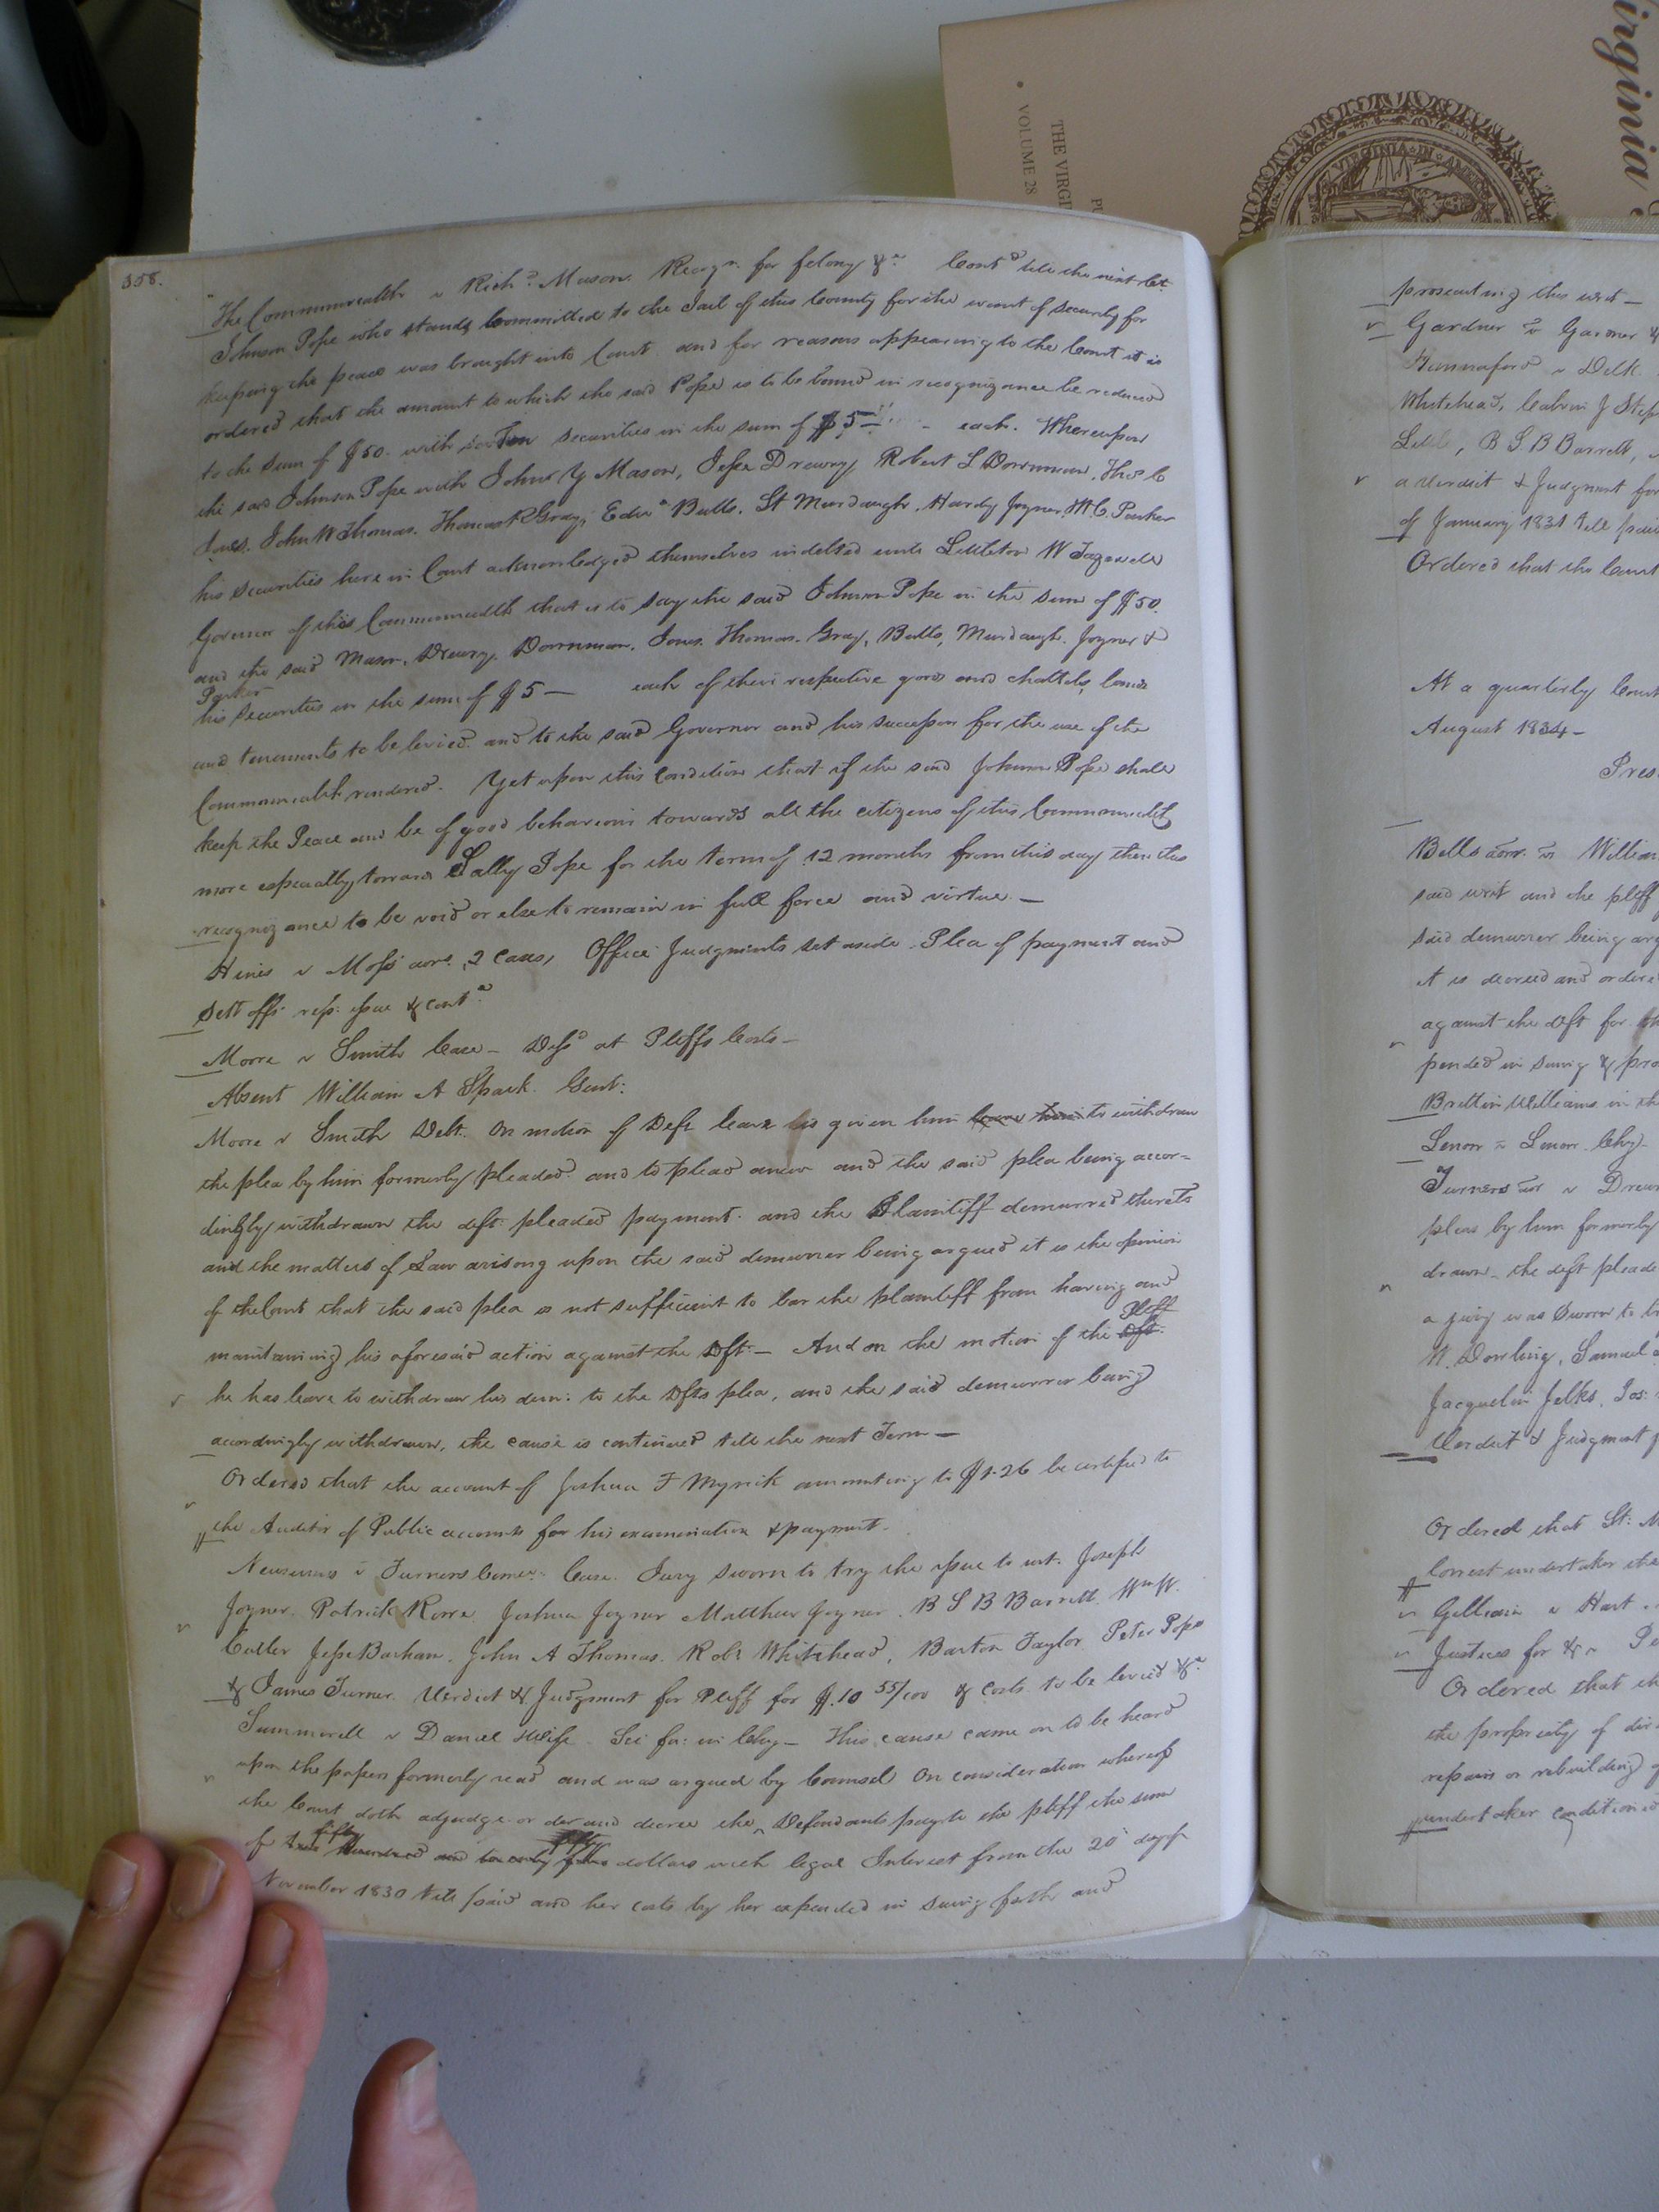 Virginia
THE VIRGI
VOLUME 28
PU
VIRGINIA IN AME
358.
The Commonwealth v Richd. Mason. Recogn. for felony &a Contd till the next Ct.
Johnson Pope who stands Committed to the Jail of this County for the want of security for
keeping the peace was brought into Court and for reasons appearing to the Court it is
ordered that the amount to which the said Pope is to be bound in recognizance be reduced
to the sum of $50. with ten securities in the sum of $5 — each. Whereupon
the said Johnson Pope with John Y Mason, Jesse Drewry, Robert S Downman, Thos C
Jones, John W Thomas. Thomas R Gray, Edwd Butts, St Murdaugh, Hardy Joyner, W C Parker
his securities here in Court acknowledged themselves indebted unto Littleton W Tazewell
Governor of this Commonwealth that is to say the said Johnson Pope in the sum of $50.
and the said Mason, Drewry, Downman, Jones, Thomas, Gray, Butts, Murdaugh, Joyner &
Parker
his securities in the sum of $5 — each of their respective goods and chattels, lands
and tenements to be levied and to the said Governor and his successors for the use of the
Commonwealth rendered. Yet upon this Condition that if the said Johnson Pope shall
keep the Peace and be of good behaviour towards all the citizens of this Commonwealth
more especially toward Sally Pope for the term of 12 months from this day then this
recognizance to be void or else to remain in full force and virtue —
Hines v Moss 2 Cases, Office Judgments set aside. Plea of payment and
sett offs rep: issue & contd
Moore v Smith Case — Dissd at Pltffs Costs —
Absent William A Spark. Gent:
Moore v Smith Debt. On motion of Deft leave is given him to withdraw
the plea by him formerly pleaded and to plead anew and the said plea being accor-
dingly withdrawn the deft pleaded payment. and the Plaintiff demurred thereto
and the matters of Law arising upon the said demurrer being argued it is the opinion
of the Court that the said plea is not sufficient to bar the plaintiff from having and
maintaining his aforesaid action against the Dft — And on the motion of the Dft. Pltff
he has leave to withdraw his dem: to the Dfts plea, and the said demurrer being
accordingly withdrawn, the cause is continued till the next Term —
Ordered that the account of Joshua F Myrick amounting to $1.26 be certified to
the Auditor of Public accounts for his examination & payment.
Newsums v Turners Case. Jury sworn to try the issue to wit. Joseph
Joyner. Patrick Joshua Joyner Matthew Joyner. B S B Barrett. Wm W.
Cutler Jesse Barham. John A Thomas. Robt Whitehead, Barton Taylor, Peter Pope
& James Turner. Verdict & Judgment for Pltff for $.10 55/100 & Costs to be levied &a
Summerell v Daniel & Wife. Sci fa: in Chy — This cause came on to be heard
upon the papers formerly read and was argued by Counsel On consideration whereof
the Court doth adjudge order and decree the Defendants pay to the pltff the sum
of fifty dollars with legal Interest from the 20 day of
November 1830 till paid and her costs by her expended in suing forth and
prosecuting this writ —
Gardner v Garner &
Hunnaford v Delk.
Whitehead, Calvin J Step
B S B Barrett,
a Verdict & Judgment for
of January 1831 till paid
Ordered that the Court
At a quarterly Court
August 1834 —
Pres
Bells v William
said writ and the pltff
said demurrer being arg
it is decreed and ordere
against the deft for
pended in suing & pro
Britton Williams in th
Lenow v Lenow Chy.
Turners v Drew
pleas by him formerly
drawn — the deft pleade
a jury was sworn to
W. Dowling, Samuel
Jacquelin Jelks, Jos:
Verdict & Judgment f
Ordered that St: M
lowest undertaker the
Gilliam v Hart
Justices for &
Ordered that th
the propriety of dir
repairs or rebuilding
undertaker conditioned